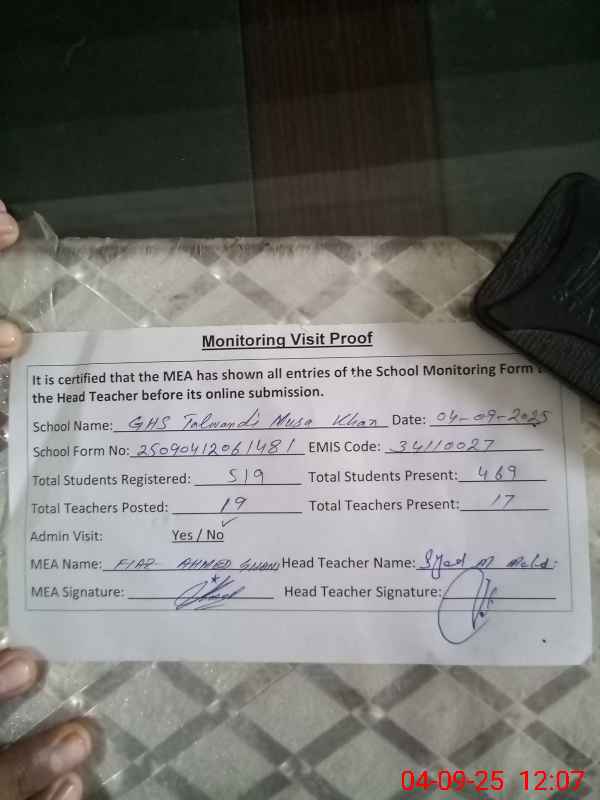 Monitoring Visit Proof
It is certified that the MEA has shown all entries of the School Monitoring Form
the Head Teacher before its online submission.
School Name: GHS Talwandi Musa Khan Date: 04-09-2025
School Form No: 25090412061481 EMIS Code: 34110027
Total Students Registered: 519 Total Students Present: 469
Total Teachers Posted: 19 Total Teachers Present: 17
Admin Visit: Yes / No ✓
MEA Name: FIAZ AHMED Head Teacher Name: Syed M
MEA Signature: Head Teacher Signature:
04-09-25 12:07